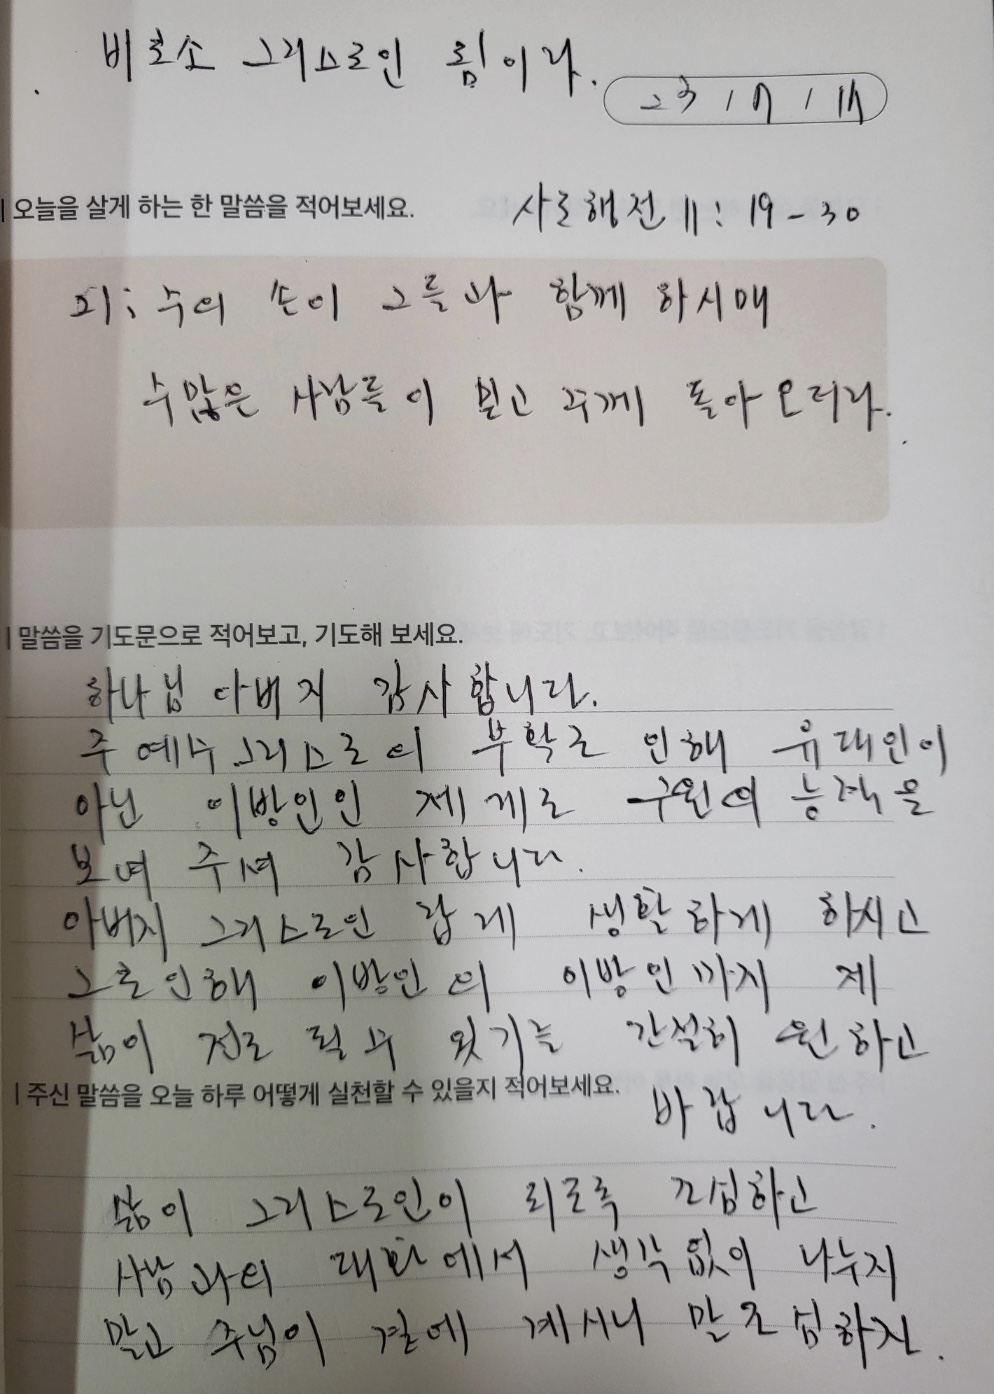 비로소 그리스도인 됨이라.
23 / 7 / 17
| 오늘을 살게 하는 한 말씀을 적어보세요.
사도행전 11 : 19 - 30
21; 주의 손이 그들과 함께 하시매
수많은 사람들이 믿고 주께 돌아오더라.
| 말씀을 기도문으로 적어보고, 기도해 보세요.
하나님 아버지 감사합니다.
주 예수 그리스도의 부활로 인해 유대인이
아닌 이방인인 제게도 구원의 능력을
보여 주셔 감사합니다.
아버지 그리스도인 답게 생활하게 하시고
그로인해 이방인의 이방인까지 제
삶이 전도 될 수 있기를 간절히 원하고
바랍니다.
| 주신 말씀을 오늘 하루 어떻게 실천할 수 있을지 적어보세요.
삶이 그리스도인이 되도록 조심하고
사람과의 대화에서 생각없이 나누지
말고 주님이 곁에 계시니 말조심하자.